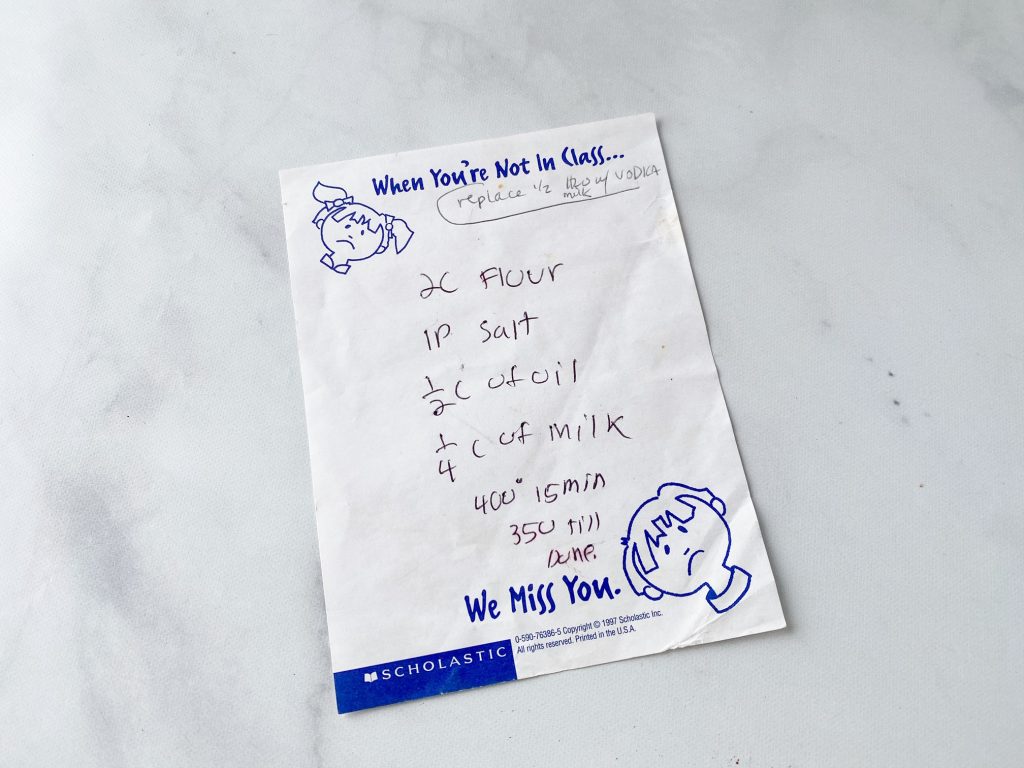 When You're Not In Class...
replace 1/2 H2O w/ VODKA
milk
2C Flour
1P Salt
1/2 C of oil
1/4 C of milk
400° 15 min
350 till
Done.
We Miss You.
0-590-76386-5 Copyright © 1997 Scholastic Inc.
All rights reserved. Printed in the U.S.A.
SCHOLASTIC